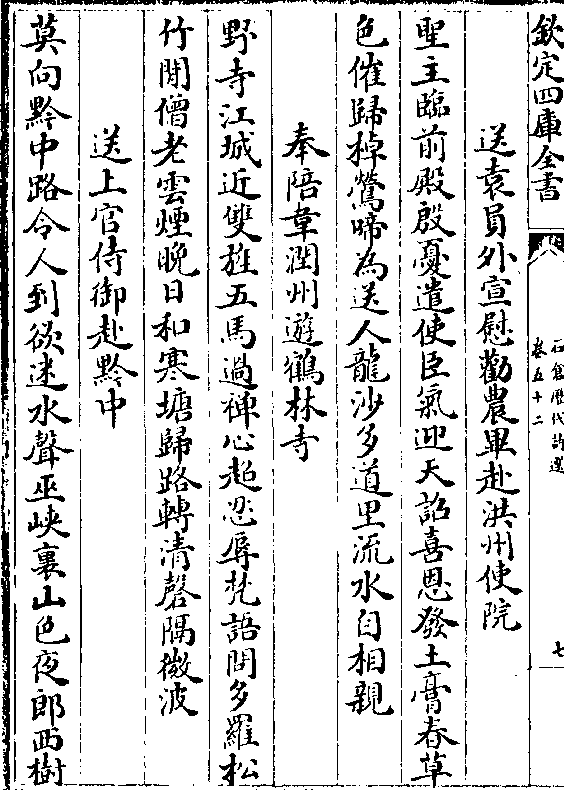 欽定四庫全書
石倉歷代詩選
卷五十二
七
送袁員外宣慰勸農畢赴洪州使院
聖主臨前殿殷憂遣使臣氣迎天詔喜恩發土膏春草
色催歸棹鶯啼為送人龍沙多道里流水自相親
奉陪韋潤州遊鶴林寺
野寺江城近雙旌五馬過禪心超忍辱梵語問多羅松
竹閒僧老雲煙晚日和寒塘歸路轉清磬隔微波
送上官侍御赴黔中
莫向黔中路令人到欲迷水聲巫峽裏山色夜郎西樹